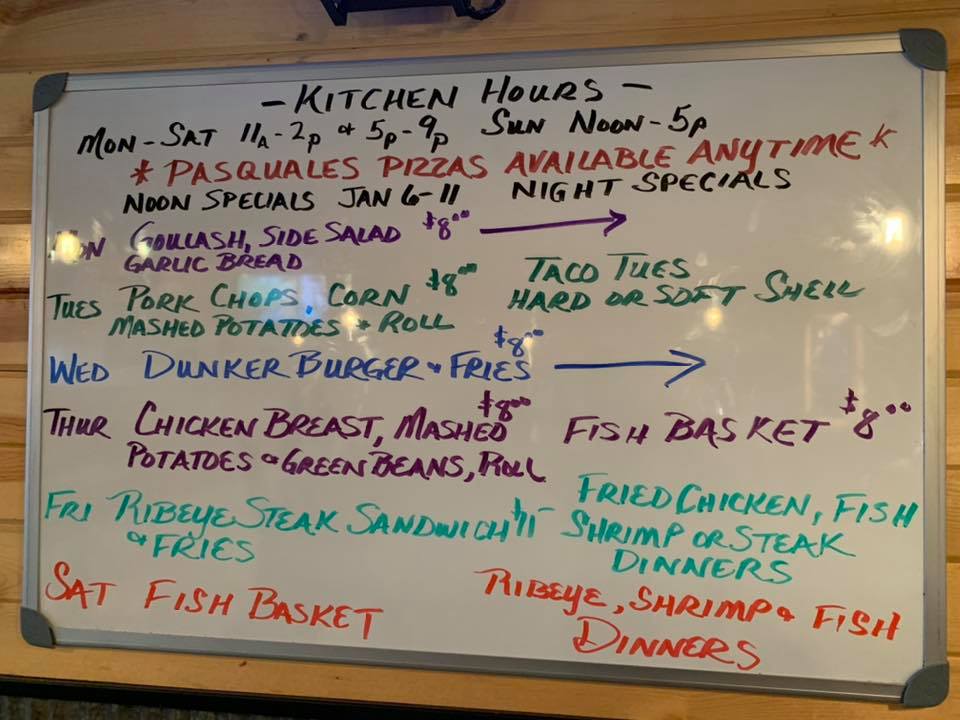 - KITCHEN HOURS -
MON-SAT 11A-2P & 5P-9P SUN NOON-5P
* PASQUALES PIZZAS AVAILABLE ANYTIME *
NOON SPECIALS JAN 6-11 NIGHT SPECIALS
MON GOULLASH, SIDE SALAD $8.00 →
GARLIC BREAD
TUES PORK CHOPS, CORN $8.00 TACO TUES
MASHED POTATOES & ROLL HARD OR SOFT SHELL
WED DUNKER BURGER & FRIES $8.00 →
THUR CHICKEN BREAST, MASHED $8.00 FISH BASKET $8.00
POTATOES & GREEN BEANS, ROLL
FRI RIBEYE STEAK SANDWICH $11- FRIED CHICKEN, FISH
& FRIES SHRIMP OR STEAK
DINNERS
SAT FISH BASKET RIBEYE, SHRIMP & FISH
DINNERS